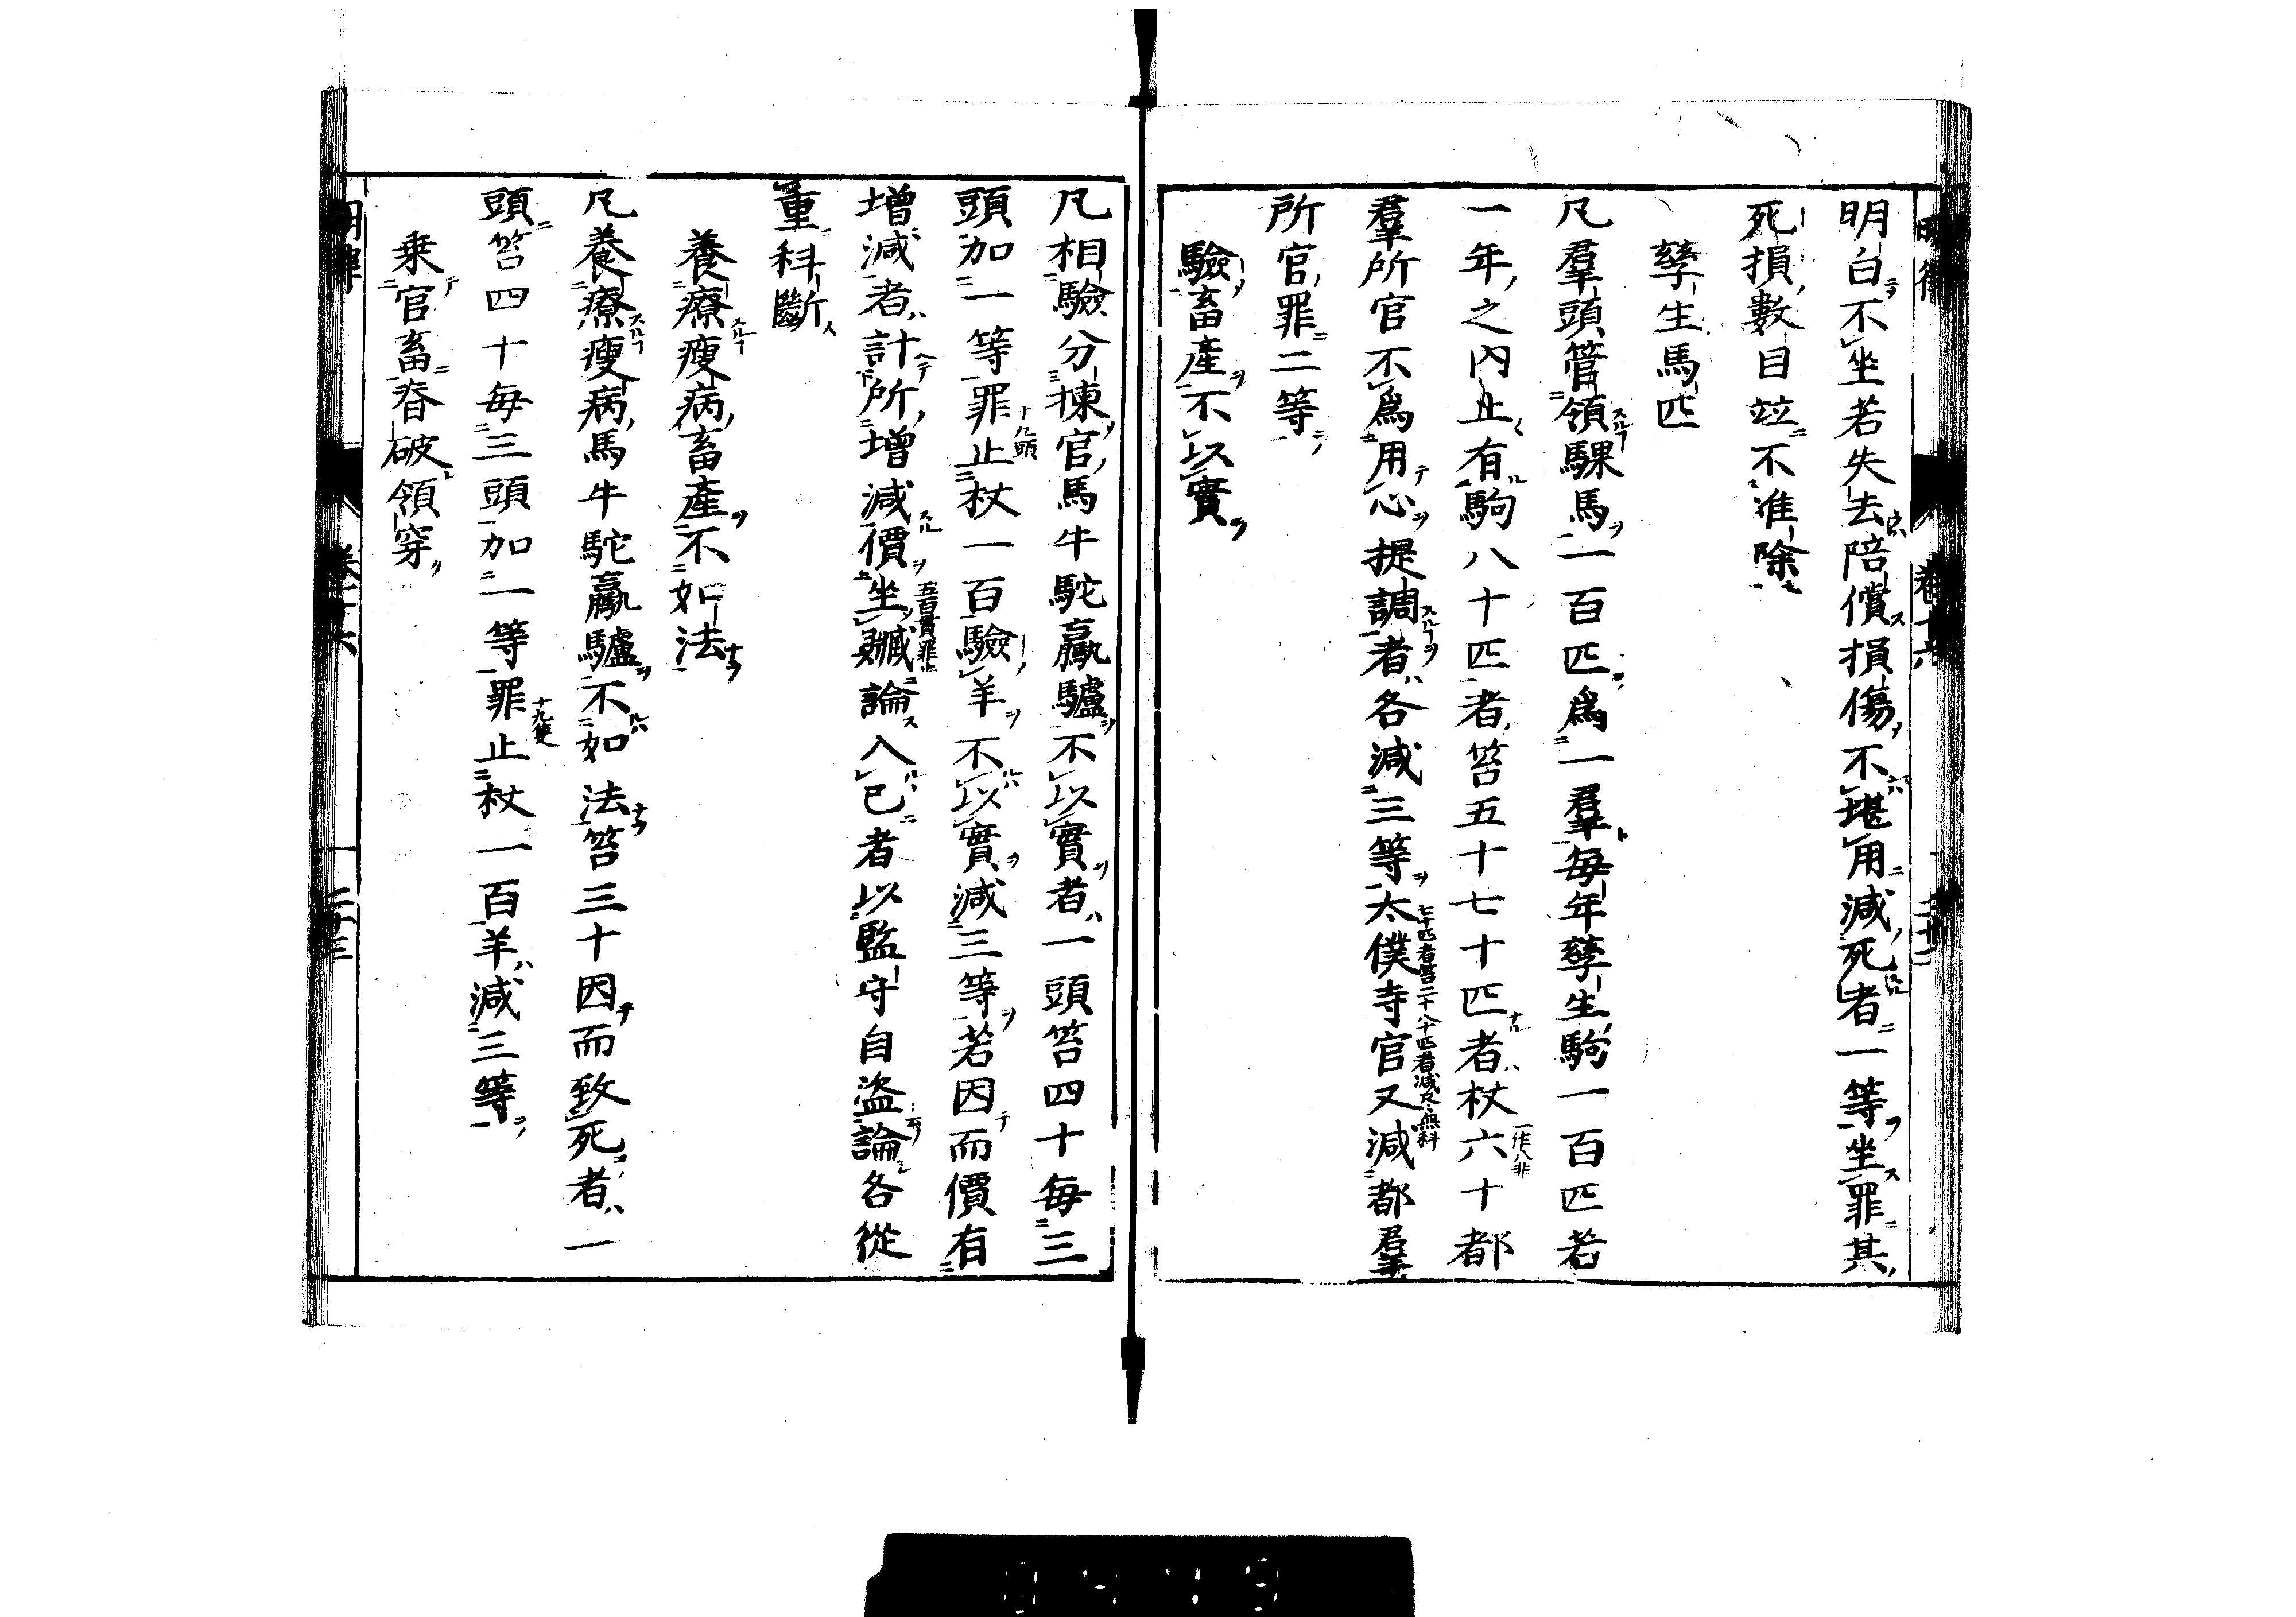 明白不坐若失去陪償損傷不堪用減死者一等坐罪其
死損數目竝不准除
孳生馬匹
凡羣頭管領騍馬一百匹爲一羣每年孳生駒一百匹若
一年之內止有駒八十匹者笞五十七十匹者杖六十都
一作八非
羣所官不爲用心提調者各減三等太僕寺官又減都羣
七十匹者笞二十八十匹者減尽無科
所官罪二等
驗畜產不以實
凡相驗分揀官馬牛駝驘驢不以實者一頭笞四十每三
頭加一等罪止杖一百驗羊不以實減三等若因而價有
十九頭
增減者計所增減價坐贓論入己者以監守自盜論各從
五百貫罪止
重科斷
養療瘦病畜產不如法
凡養療瘦病馬牛駝驘驢不如法笞三十因而致死者一
頭笞四十每三頭加一等罪止杖一百羊減三等
十九隻
乗官畜脊破領穿